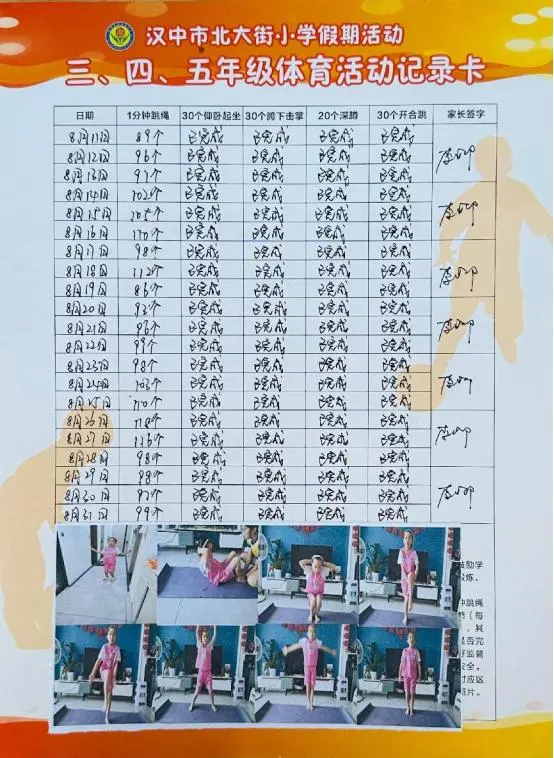 汉中市北大街小学假期活动
三、四、五年级体育活动记录卡
日期 1分钟跳绳 30个仰卧起坐 30个胯下击掌 20个深蹲 30个开合跳 家长签字
8月11日 89个 已完成 已完成 已完成 已完成
8月12日 96个 已完成 已完成 已完成 已完成
8月13日 97个 已完成 已完成 已完成 已完成
8月14日 102个 已完成 已完成 已完成 已完成
8月15日 105个 已完成 已完成 已完成 已完成
8月16日 110个 已完成 已完成 已完成 已完成
8月17日 98个 已完成 已完成 已完成 已完成
8月18日 112个 已完成 已完成 已完成 已完成
8月19日 86个 已完成 已完成 已完成 已完成
8月20日 93个 已完成 已完成 已完成 已完成
8月21日 96个 已完成 已完成 已完成 已完成
8月22日 99个 已完成 已完成 已完成 已完成
8月23日 98个 已完成 已完成 已完成 已完成
8月24日 103个 已完成 已完成 已完成 已完成
8月25日 110个 已完成 已完成 已完成 已完成
8月26日 118个 已完成 已完成 已完成 已完成
8月27日 126个 已完成 已完成 已完成 已完成
8月28日 98个 已完成 已完成 已完成 已完成
8月29日 98个 已完成 已完成 已完成 已完成
8月30日 97个 已完成 已完成 已完成 已完成
8月31日 99个 已完成 已完成 已完成 已完成
励学
炼，
跳绳
（每
，其
是否完
好监督
安全。
对应区
照片。